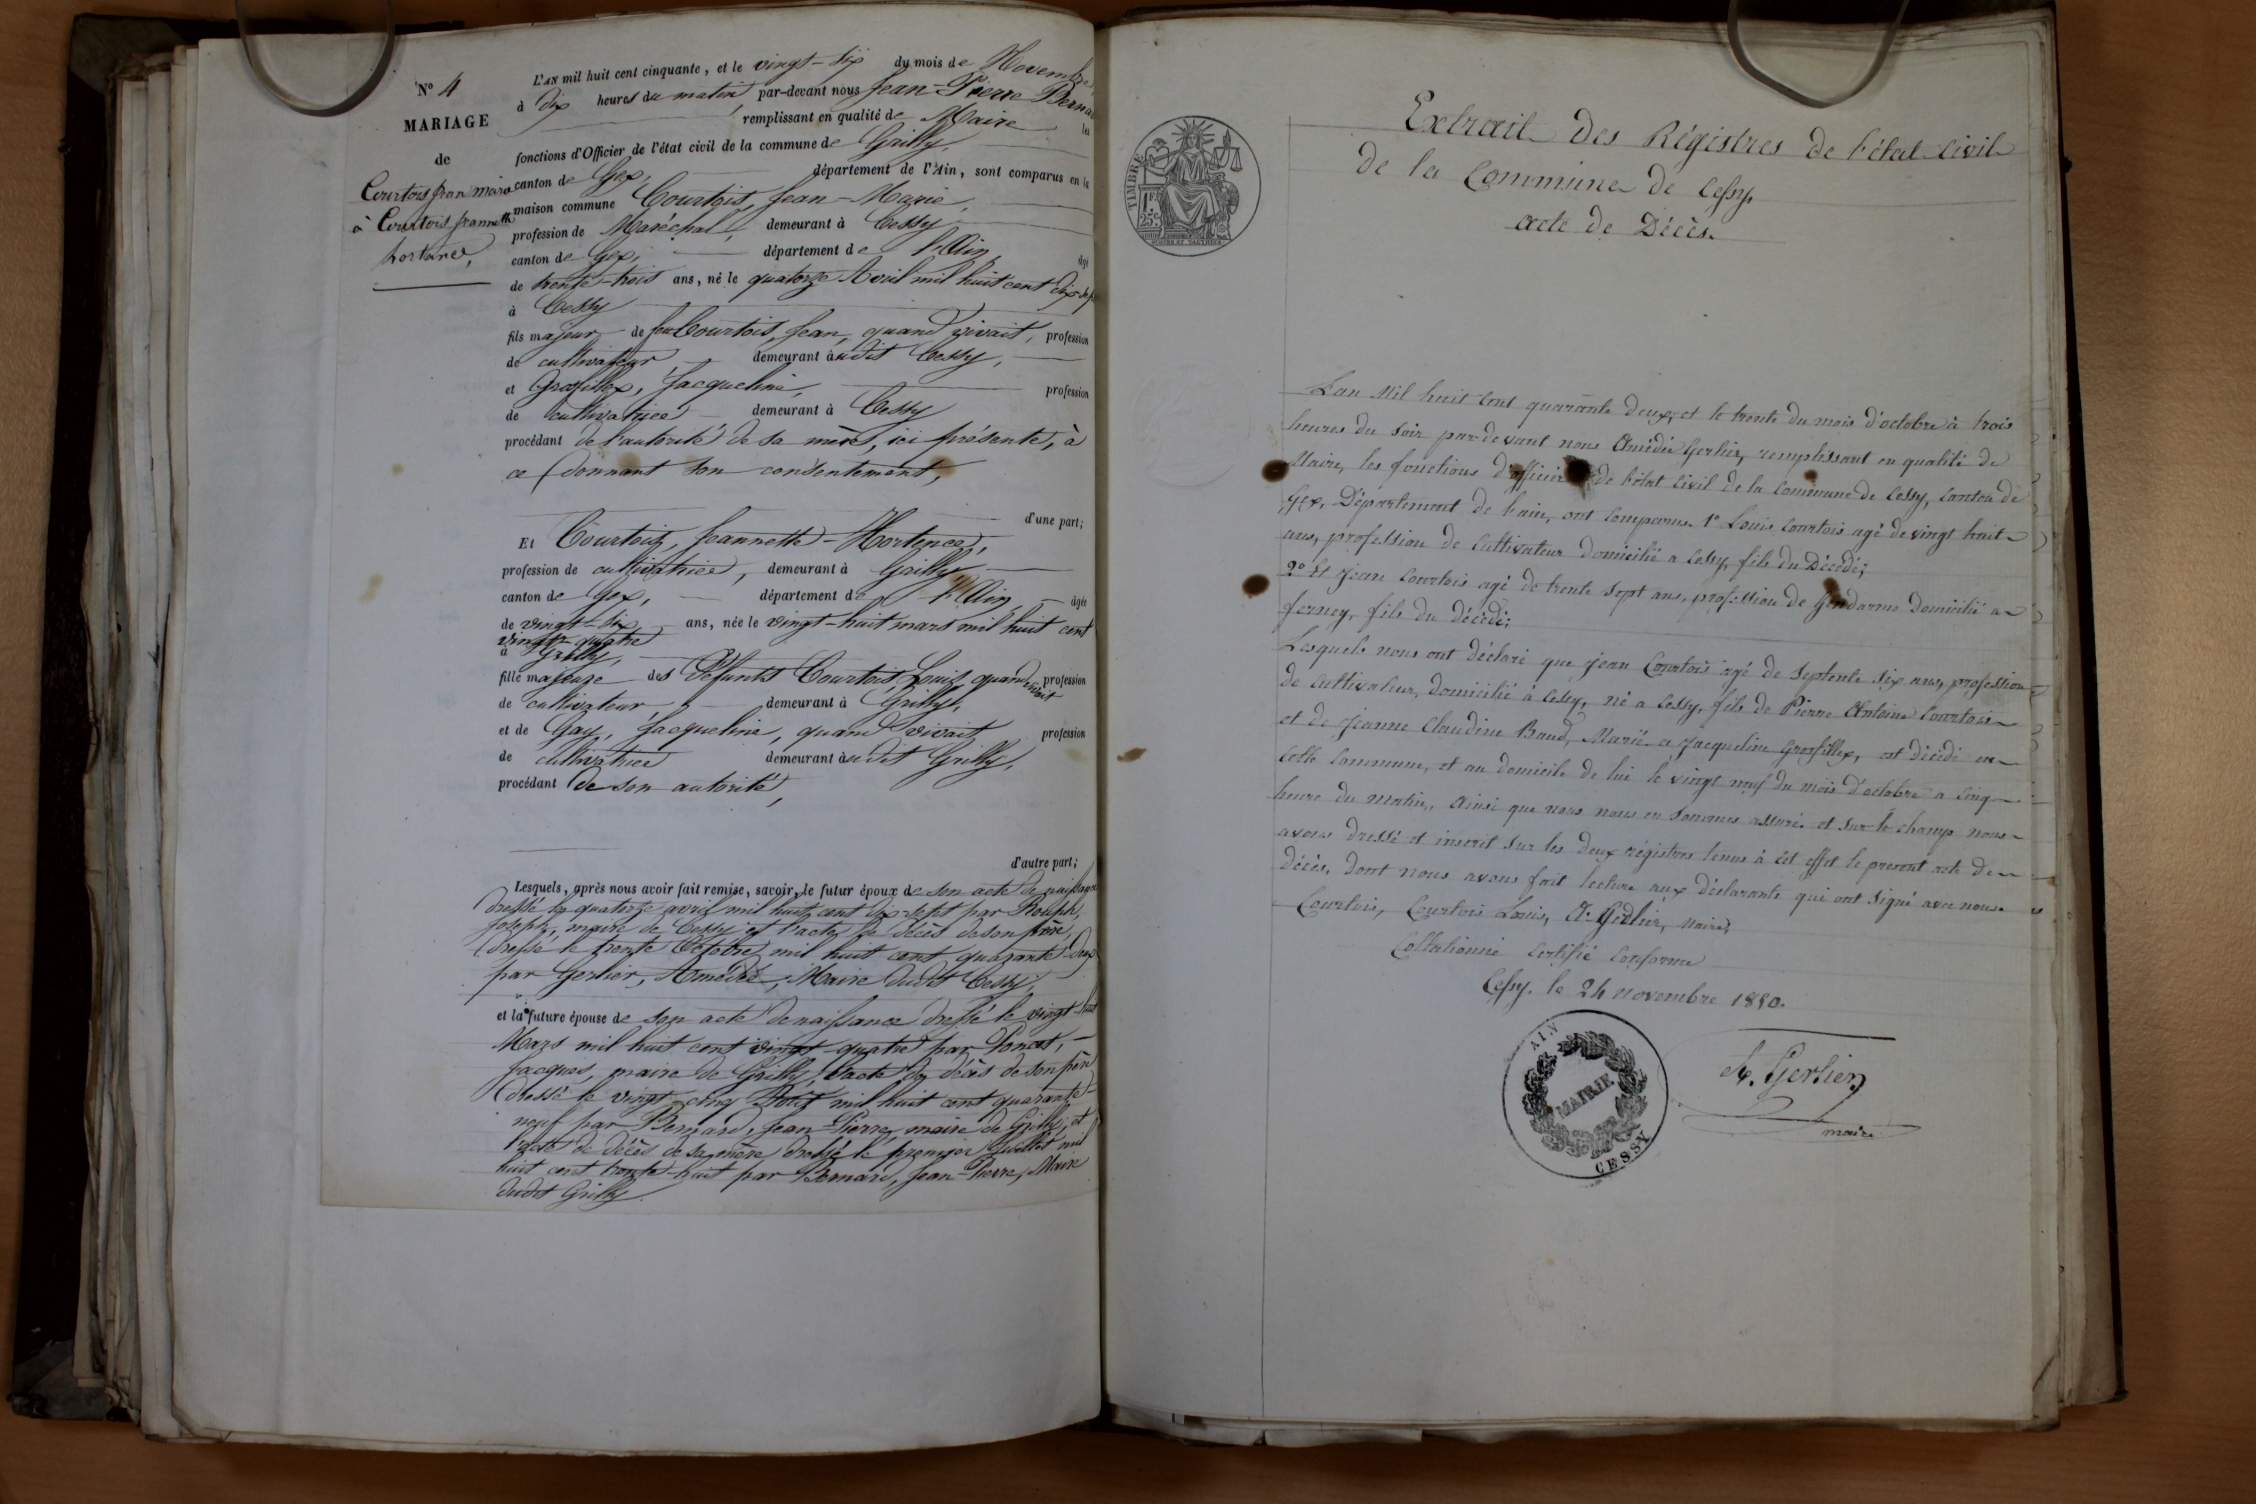 N° 4
MARIAGE
de
Courtois Jean marie
à Courtois Jeannette
hortance,
L'AN mil huit cent cinquante, et le vingt-six du mois de Novembre
à dix heures du matin, par-devant nous Jean-Pierre Bernard
remplissant en qualité de Maire les
fonctions d'Officier de l'état civil de la commune de Grilly,
canton de Gex, département de l'Ain, sont comparus en la
maison commune Courtois, Jean-Marie,
profession de Maréchal, demeurant à Cessy
canton de Gex, département de l'Ain, âgé
de trente-trois ans, né le quatorze Avril mil huit cent dix-sept
à Cessy
fils majeur de feu Courtois, Jean, quand vivait, profession
de cultivateur demeurant audit Cessy,
et Grosfillex, Jacqueline, profession
de cultivatrice demeurant à Cessy
procédant de l'autorité de sa mère, ici présente, à
ce donnant son consentement,
d'une part;
Et Courtois, Jeannette-Hortence,
profession de cultivatrice, demeurant à Grilly,
canton de Gex, département de l'Ain, âgée
de vingt-six ans, née le vingt-huit mars mil huit cent
vingt-quatre
à Grilly,
fille majeure des défunts Courtois, Louis, quand vivait profession
de cultivateur demeurant à Grilly,
et de Gay, Jacqueline, quand vivait, profession
de cultivatrice demeurant audit Grilly,
procédant de son autorité,
d'autre part;
Lesquels, après nous avoir fait remise, savoir, le futur époux de son acte de naissance
dressé le quatorze avril mil huit cent dix-sept par Rouph,
Joseph, maire de Cessy et l'acte de décès de son père,
dressé le trente Octobre mil huit cent quarante-deux
par Gerlier, Amédée, Maire dudit Cessy,
et la future épouse de son acte de naissance dressé le vingt-huit
Mars mil huit cent vingt-quatre par Poncet,
Jacques, maire de Grilly, l'acte de décès de son père
dressé le vingt-cinq Août mil huit cent quarante-
neuf par Bernard, Jean-Pierre, maire de Grilly, et
l'acte de décès de sa mère dressé le premier Juillet mil
huit cent trente-huit par Bernard, Jean-Pierre, Maire
dudit Grilly.
TIMBRE
1 F.
25 C.
Extrait des Régistres de l'état civil
de la Commune de Cessy.
acte de Décès.
L'an Mil huit Cent quarante deux, et le trente du mois d'octobre à trois
heures du soir par-devant nous Amédée Gerlier, remplissant en qualité de
Maire, les fonctions d'officier de l'état Civil de la Commune de Cessy, Canton de
Gex, Département de l'ain, ont Comparus. 1° Louis Courtois agé de vingt huit
ans, profession de Cultivateur domicilié a Cessy, fils du Décédé;
2° Et Jean Courtois agé de trente sept ans, profession de Gendarme Domicilié a
ferney, fils du décédé;
Lesquels nous ont déclaré que Jean Courtois agé de septente six ans, profession
de Cultivateur, domicilié à Cessy, né a Cessy, fils de Pierre Antoine Courtois
et de Jeanne Claudine Baud, Marié a Jacqueline Grosfillex, est décédé en
cette Commune, et au domicile de lui le vingt neuf du mois d'octobre a cinq
heure du matin, Ainsi que nous nous en sommes assuré. et sur le champ nous
avons dressé et inscrit sur les deux régistres tenus à cet effet le present acte de
décès, dont nous avons fait lecture aux déclarants qui ont signé avec nous.
Courtois, Courtois Louis, A. Gerlier, Maire,
Collationné certifié conforme
Cessy, le 24 novembre 1850.
AIN
MAIRIE
CESSY
A. Gerlier
maire